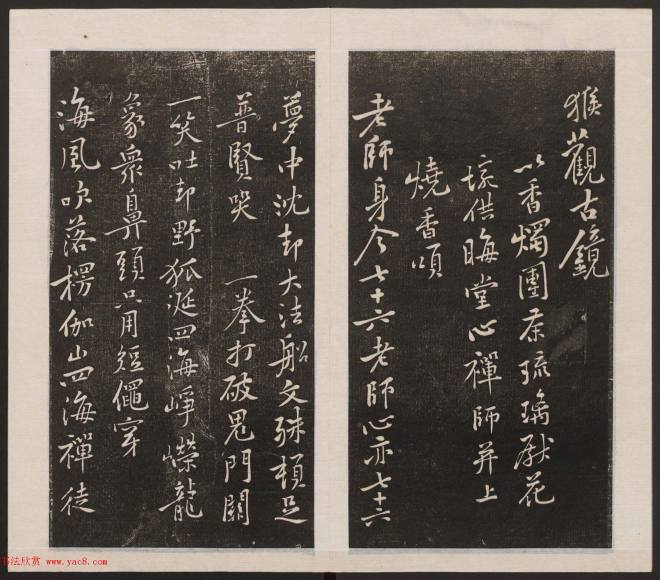 猴觀古鏡
以香燭團茶琉璃獻花
供晦堂心禪師并上
燒香頌
老師身今七十六老師心亦七十六
夢中沈却大法船文殊頓足
普賢哭 一拳打破鬼門關
一笑吐却野狐涎四海崢嶸龍
象眾鼻頭只用短繩穿
海風吹落楞伽山四海禪徒
书法欣赏 www.yac8.com